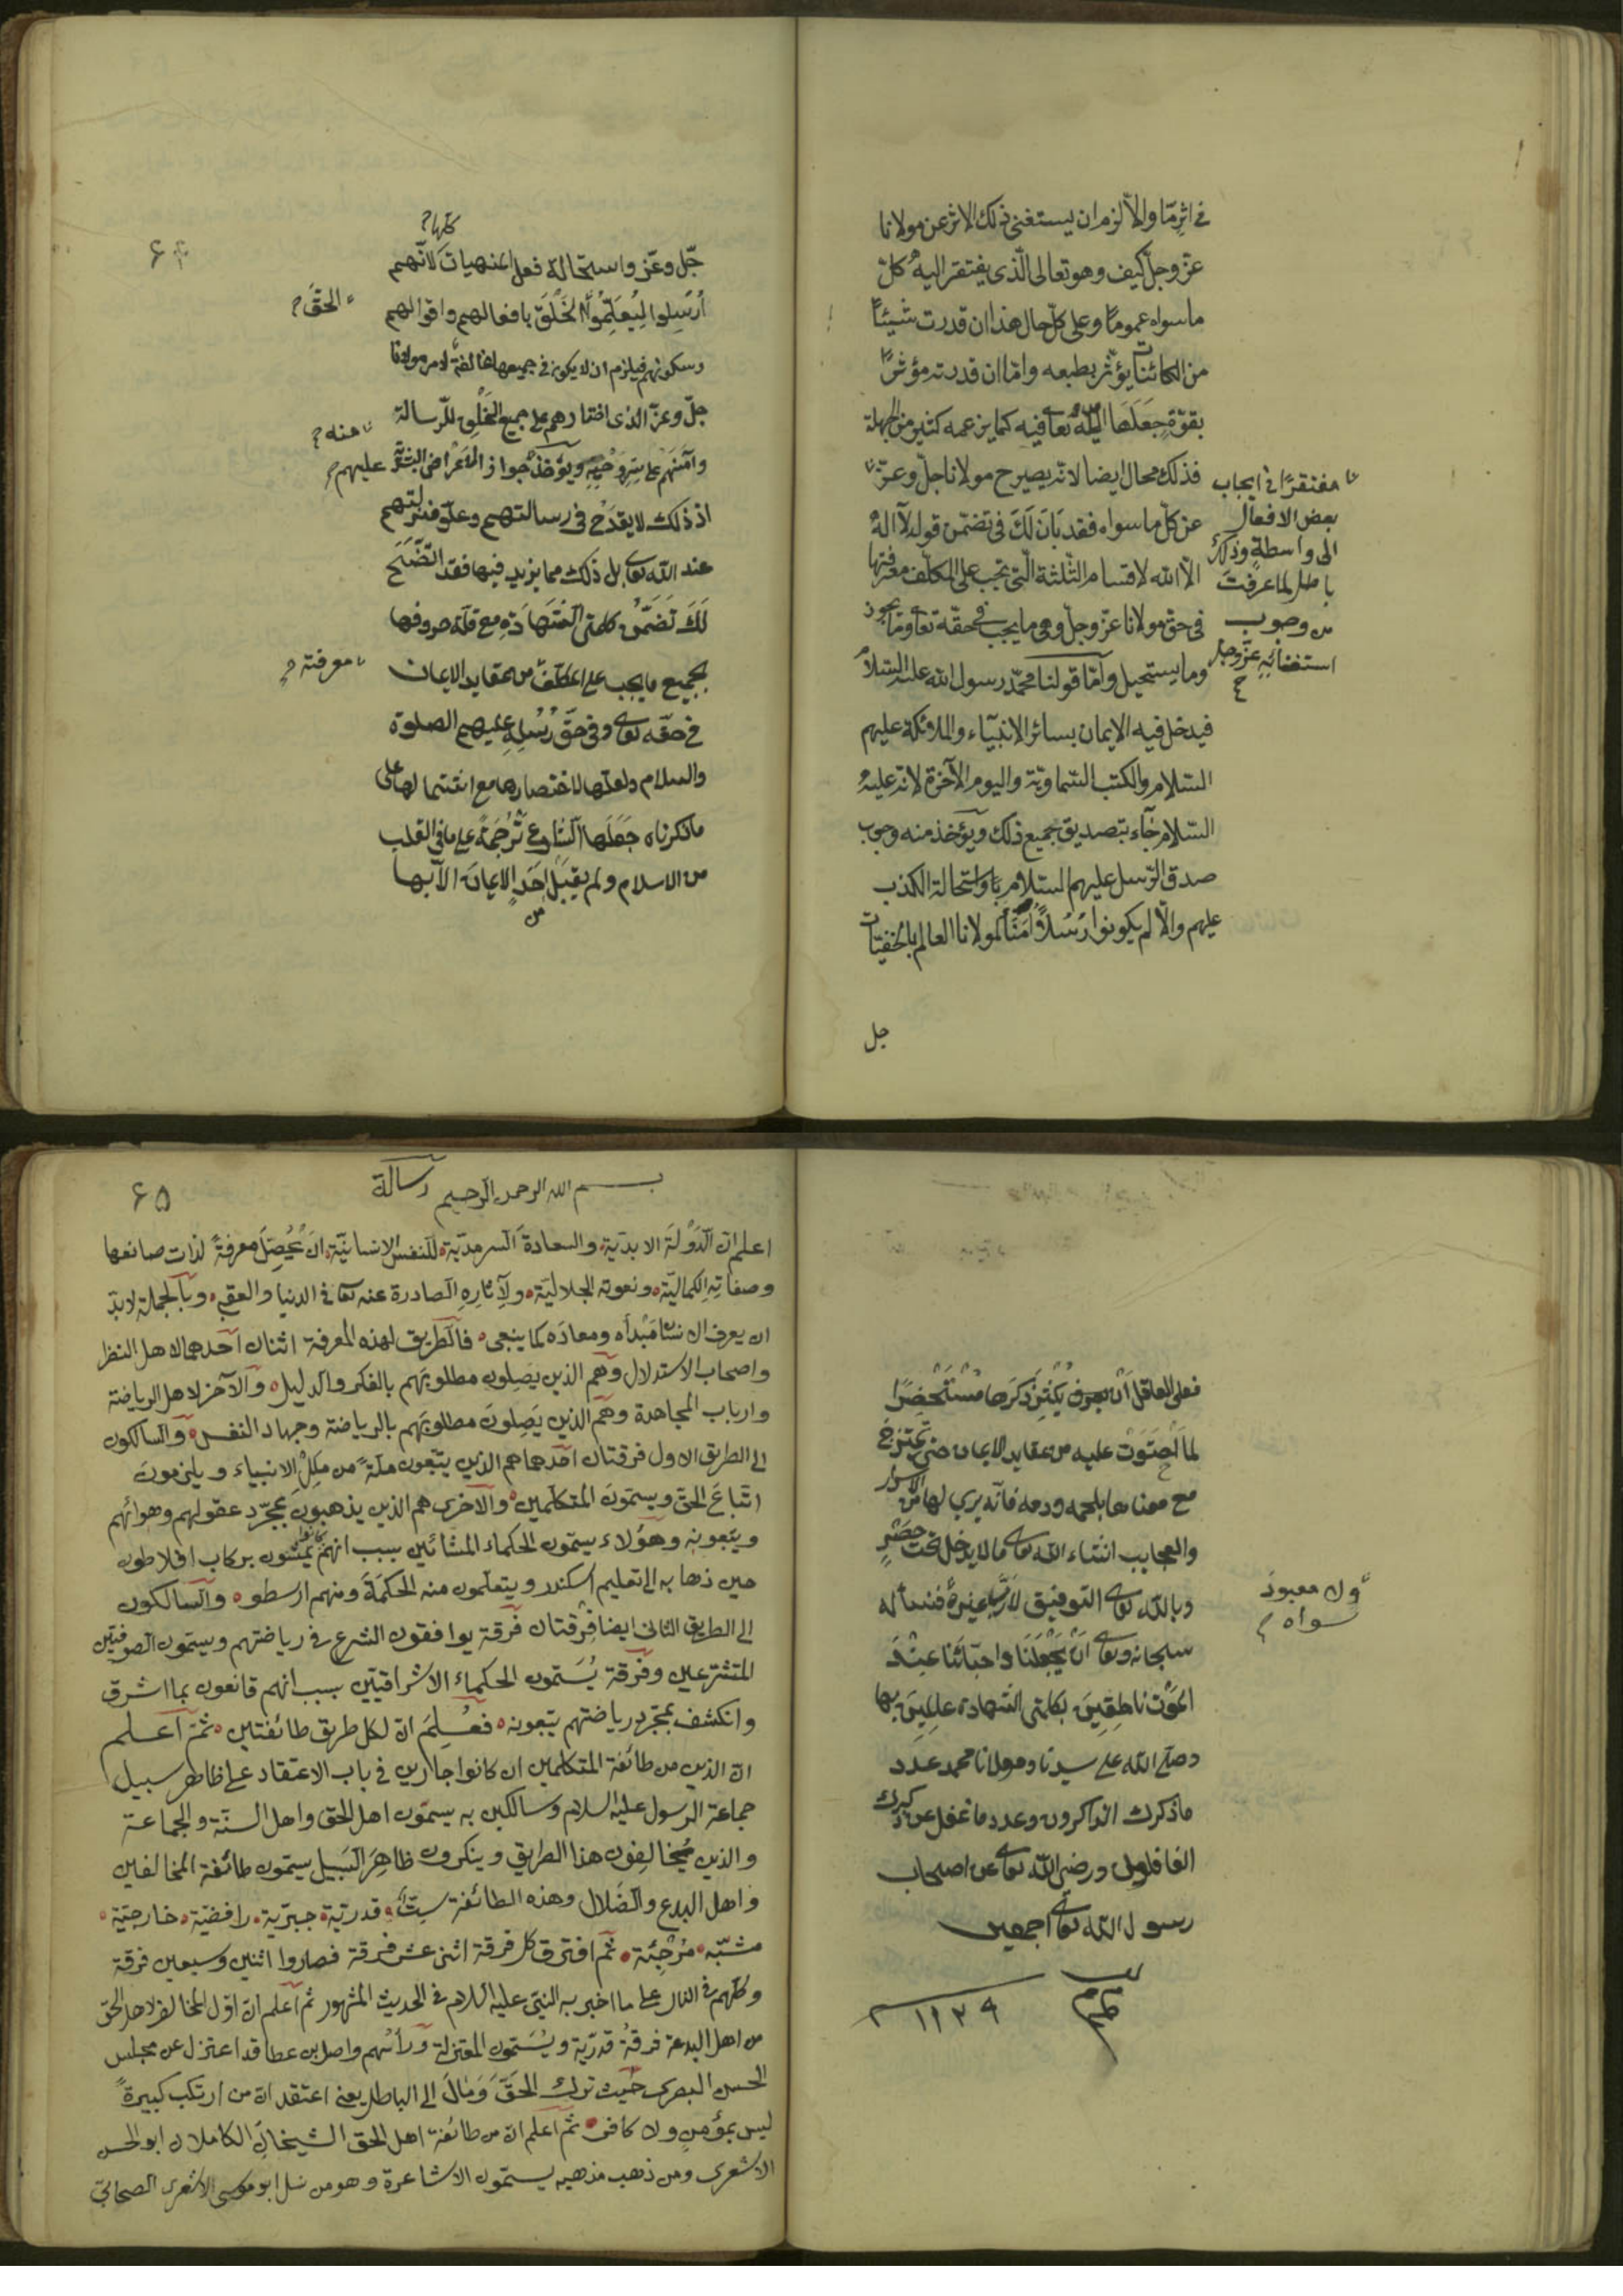 في اثر مّا والّا لزم ان يستغنى ذلك الاثر عن مولانا
عزّ وجلّ كيف وهو تعالى الّذى يفتقر اليه كلّ
ما سواه عموما وعلى كلّ حال هذا ان قدرت شيئًا
من الكائنات يؤثّر بطبعه وامّا ان قدرته مؤثرًا
بقوّة جَعَلَها اللّه تعا فيه كما يزعمه كثير من الجهلة
فذلك محال ايضا لانّه يصير ح مولانا جلّ وعزّ
مفتقرًا في ايجاب
بعض الافعال
الى واسطةٍ وذلك
باطل لما عرفتَ
من وجوب
استغنائِهِ عزّ وجل
عن كلّ ما سواه فقد بَانَ لَكَ في تضمّن قول لآ الهَ
الّا اللّه لاقسام الثّلثة الّتى تجب على المكلّف معرفتها
في حقّ مولانا عزّ وجلّ وهى ما يجب في حقّه تعا وما يجوز
وما يستحيل وامّا قولنا محمّد رسول اللّه عليه السّلام
فيدخل فيه الايمان بسائر الانبيآء والملائكة عليهم
السّلام والكتب السّماويّة واليوم الآخرة لانّه عليه
السّلام جآء بتصديق جميع ذلك ويؤخذ منه وجوب
صدق الرّسل عليهم السّلام واستحالة الكذب
عليهم والّا لم يكونوا رُسُلاً اُمَنَآ لمولانا العالم بالخفيّات
جل
۶۴
كلّها
جّل وعّز واستحالة فعل المنهيات لانّهم
اُرْسِلوا لِيُعَلِّمُوا الخَلْقَ بافعالهم واقوالهم
الحقَّ
وسكوتهم فيلزم ان لا يكون في جميعها مخالفةٌ لامر مولانا
جلّ وعزّ الذى اختارهم على جميع الخَلْقِ للرّسالة
منه
وآمَنَهُم على سِرِّ وَحْيِهِ ويؤخَذُ جواز الاَعْرَاضِ البشَرِيّة عليهم
اذ ذلك لا يقدَحُ في رسالتهم وعلوّ منزلتهم
عند اللّه تعالى بل ذلك مما يزيد فيها فقد اتّضَحَ
لَكَ تَضَمُّنُ كلمتى الشَّهَادَةِ مع قلّة حروفها
لجميع ما يجب على المكلّف من عقايد الايمان
معرفته
في حقّه تعالى وفي حَقِّ رُسُلِهِ عليهم الصلوة
والسلام ولعلّها لاختصارها مع اشتمالها على
ما ذكرناه جَعَلَها الشارع تَرْجَمَةً على ما في القلب
من الاسلام ولم يقبَل من اَحَدٍ الايمانَ الّا بها
فعلى العاقل اَنْ يكثِرَ ذكرَها مُسْتَحْضِرًا
لما اَحْتَوَتْ عليه من عقايد الايمان حتى تمتزجَ
مع معناها بلحمه ودمه فانّه يرى لها من الاسرار
والعجايب انشاء اللّه تعالى ما لا يدخل تحت حَصْرٍ
وباللّه تعالى التوفيق لا رَبَّ غيرهُ فنسأله
ولا معبودَ
سواه
سبحانه وتعالى اَنْ يَجْعَلَنَا واحبّائَنا عِنْدَ
المَوْتِ نَاطِقِينَ بكلمتى الشهادة عالمِينَ بها
وصلّى اللّه على سيدنا ومولانا محمد عدد
ما ذكرك الذاكرون وعدد ما غفل عن ذكرك
الغافلون ورضى اللّه تعالى عن اصحاب
رسول اللّه تعالى اجمعين
۱۱۳۹
۶۵
بسم اللّه الرحمن الرحيم رسالة
اعلم انّ الدَّوْلَةَ الابديّة والسعادةَ السرمديّة للنفس الانسانيّة ان تُحَصِّلَ معرفةً لذات صانعها
وصفاتِهِ الكماليّة ونعوته الجلاليّة ولآثارِهِ الصادرة عنه تعا في الدنيا والعقبى وبالجملة لابدّ
ان يعرف الانسان مَبْدأه ومعادَه كما ينبغى فالطّريق لهذه المعرفة اثنان احدهما لاهل النظر
واصحاب الاستدلال وهم الذين يَصِلون مطلوبَهم بالفكر والدليل والآخر لاهل الرياضة
وارباب المجاهدة وهُم الذين يَصِلونَ مطلوبَهم بالرياضة وجهاد النفس والسالكون
الى الطريق الاول فرقتان احدهما هم الذين يتّبعون ملّةً من مِلَلِ الانبياء ويلزمون
اتّباعَ الحقّ ويسمّون المتكلّمين والاخرى هم الذين يذهبون بمجرّد عقولهم وهوائهم
ويتّبعونه وهؤلاء يسمّون الحكماء المشّائين بسبب انهم كانوا يمشون بركاب افلاطون
حين ذهابه الى تعليم اسكندر ويتعلّمون منه الحكمَةَ ومنهم ارسطو والسالكون
الى الطريق الثانى ايضا فِرْقتان فرقة يوافقون الشرع في رياضتهم ويسمّون الصوفيّين
المتشرّعين وفرقة يُسَمّون الحكماء الاشراقيّين بسبب انهم قانعون بما اشرق
وانكشف بمجرّد رياضتهم يتّبعونه فعُلِمَ انّ لكل طريق طائفتين ثمّ اعلم
انّ الذين من طائفة المتكلمين ان كانوا جارين في باب الاعتقاد على ظاهر سبيل
جماعة الرسول عليه السلام وسالكين به يسمّون اهل الحق واهل السنّة والجماعة
والذين يُخالِفون هذا الطريق وينكرون ظاهرَ السَبيل يسمّون طائفة المخالفين
واهل البدع والضَلال وهذه الطائفة ستٌّ قدريّة جبريّة رافضيّة خارجيّة
مشبّه مُرْجِئَة ثم افترق كل فرقة اثنى عشر فرقة فصاروا اثنين وسبعين فرقة
وكلّهم في النار على ما اخبر به النبّى عليه السلام في الحديث المشهور ثم اعلم انّ اوّل المخالفر لاهل الحقّ
من اهل البدعة فرقةُ قدرّية ويُسَمّون المعتزلة ورأسُهم واصل بن عطا قد اعتزل عن مجلس
الحسن البصرى حَيث ترك الحَقَّ وَمَالَ الى الباطل يعنى اعتقد انّ من ارتكب كبيرةً
ليس بمؤمنٍ ولا كافر ثم اعلم انّ من طائفة اهل الحق الشيخان الكاملان ابو الحسن
الاشعرى ومن ذهب مذهبه يسمّون الاشاعرة وهو من نسل ابو موسى الاشعرى الصحابىّ